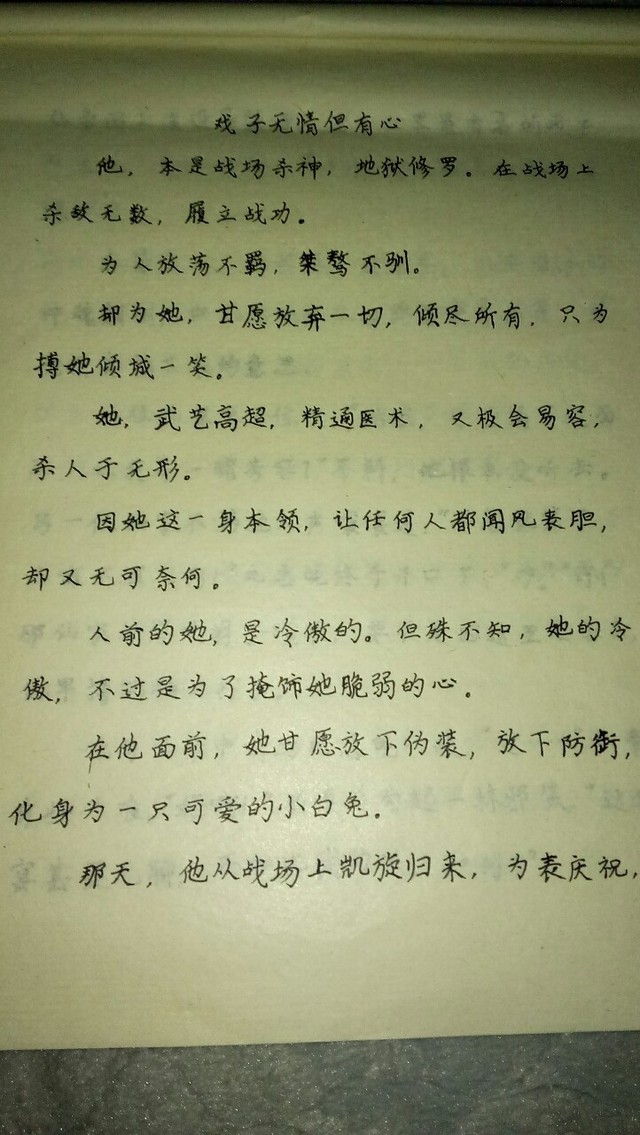 戏子无情但有心
他，本是战场杀神，地狱修罗。在战场上
杀敌无数，履立战功。
为人放荡不羁，桀骜不驯。
却为她，甘愿放弃一切，倾尽所有，只为
搏她倾城一笑。
她，武艺高超，精通医术，又极会易容，
杀人于无形。
因她这一身本领，让任何人都闻风丧胆，
却又无可奈何。
人前的她，是冷傲的。但殊不知，她的冷
傲，不过是为了掩饰她脆弱的心。
在他面前，她甘愿放下伪装，放下防
化身为一只可爱的小白兔。
那天，他从战场上凯旋归来，为表庆祝，